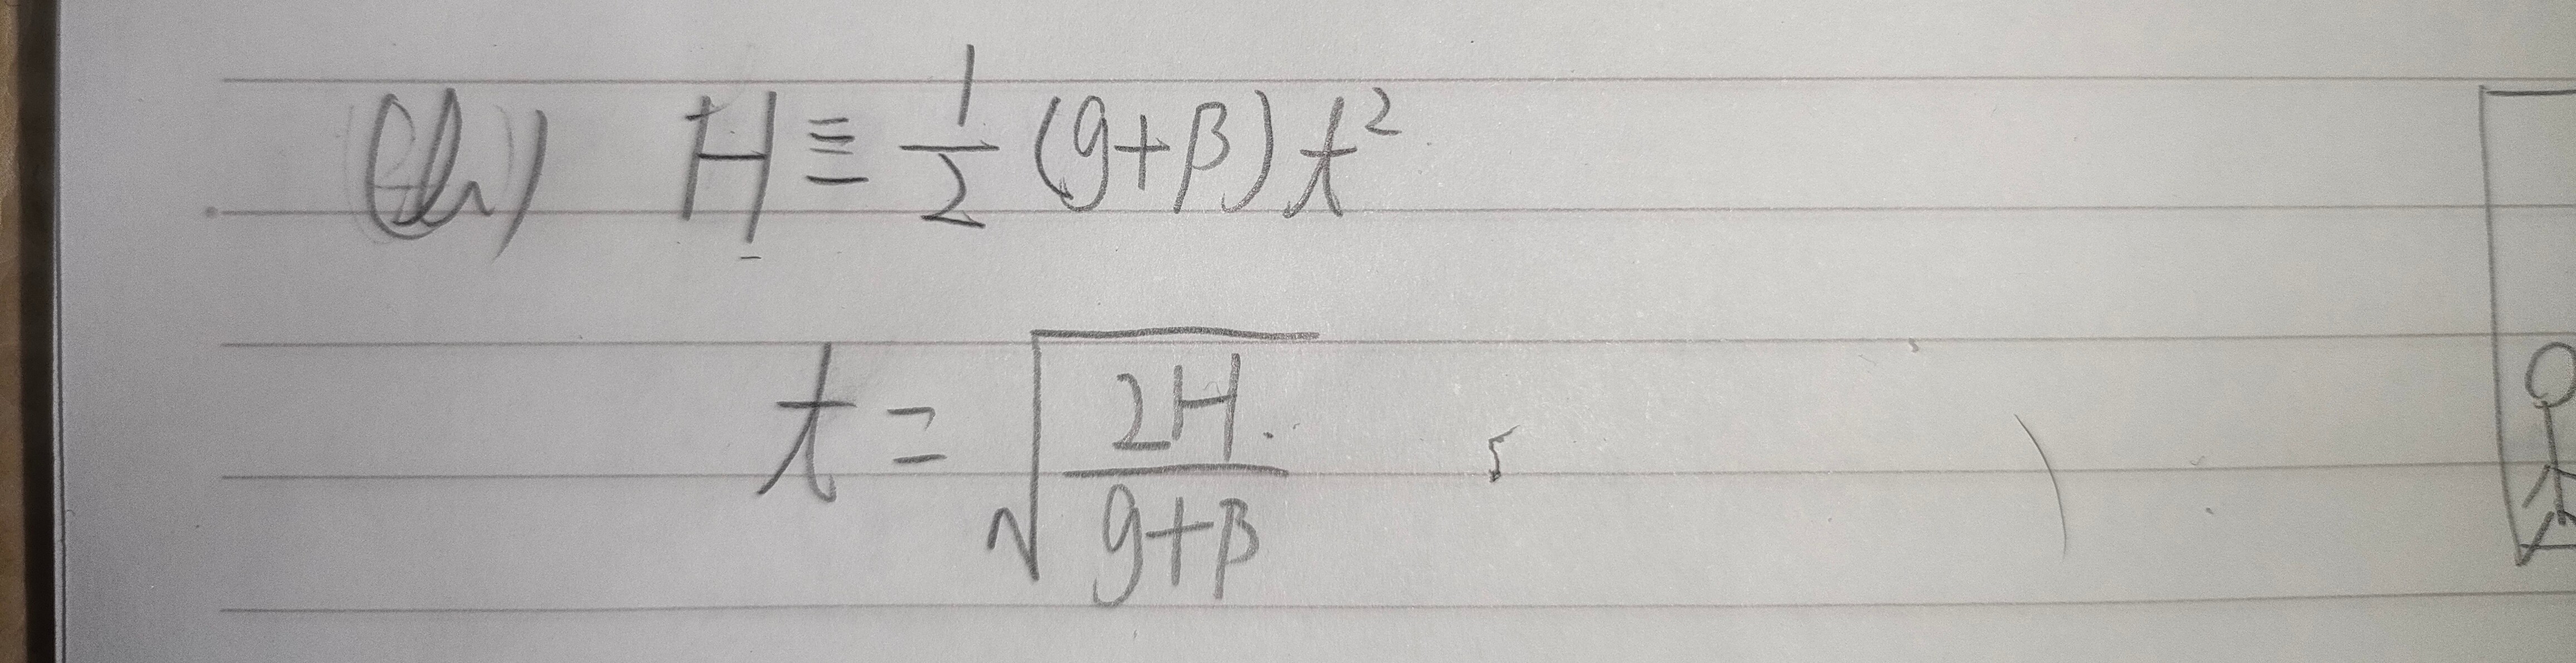 (h) H ≡ 1/2 (g+β) t²
t = √(2H/(g+β))